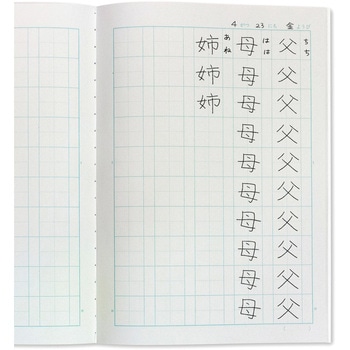 4 がつ 23 にち 金 ようび
ちち
父父父父父父父父父父
はは
母母母母母母母母母母
あね
姉姉姉